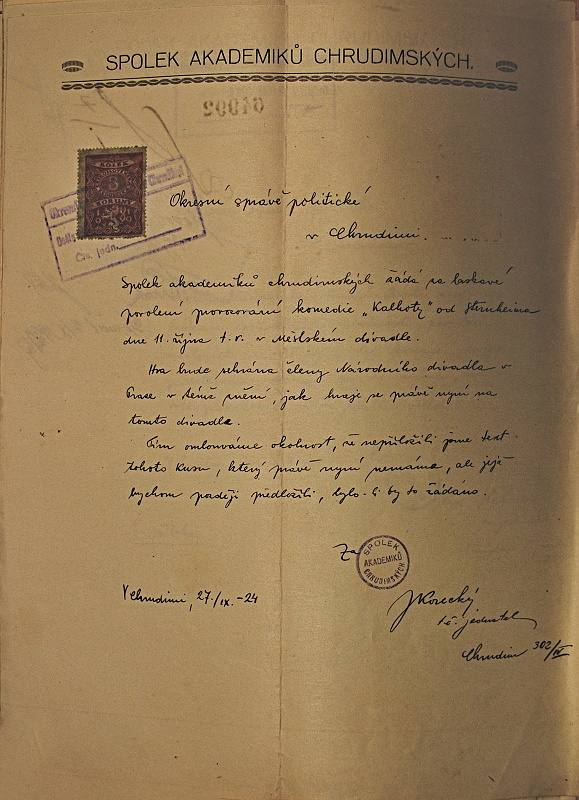 SPOLEK AKADEMIKŮ CHRUDIMSKÝCH.
01002
KOLEK
5
KORUNY
Okresní
Chrudimi
Došlo
Čís. jedn.
Okresní správě politické
v Chrudimi.
Spolek akademiků chrudimských žádá za laskavé
povolení provozování komedie „Kalhoty" od Sternheima
dne 11. října t. r. v Městském divadle.
Hra bude sehrána členy Národního divadla v
Praze v témž znění, jak hraje se právě nyní na
tomto divadle.
Tím omlouváme okolnost, že nepřiložili jsme text
tohoto kusu, který právě nyní nemáme, ale jejž
bychom později předložili, bylo-li by to žádáno.
Za
SPOLEK
AKADEMIKŮ
CHRUDIMSKÝCH
V Chrudimi, 27./IX.-24
t. č. jednatel
Chrudim 302/IV